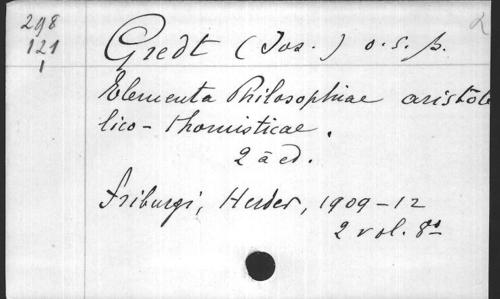 298
121
1
Gredt (Jos.) o.s.b.
2
Elementa Philosophiae aristote
lico-thomisticae.
2a ed.
Friburgi, Herder, 1909-12
2 vol. 8º